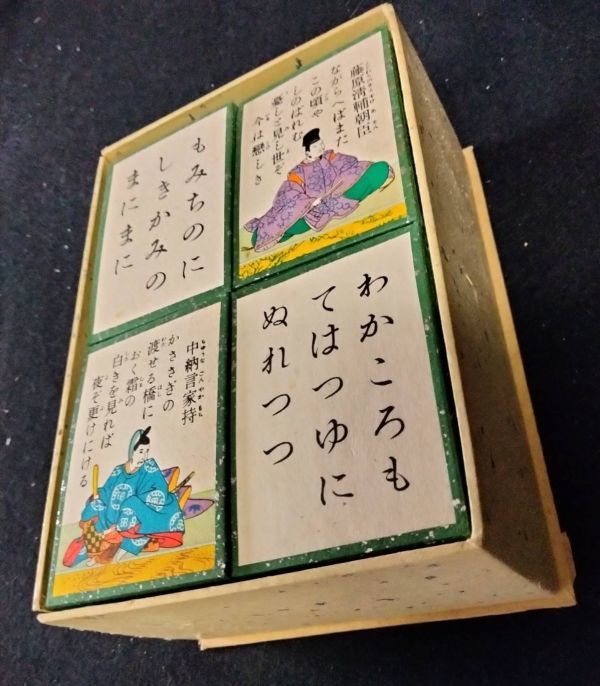 藤原清輔朝臣
ながらへばまた
この頃や
しのばれむ
憂しと見し世ぞ
今は戀しき
もみちのに
しきかみの
まにまに
わかころも
てはつゆに
ぬれつつ
中納言家持
かささぎの
渡せる橋に
おく霜の
白きを見れば
夜ぞ更けにける